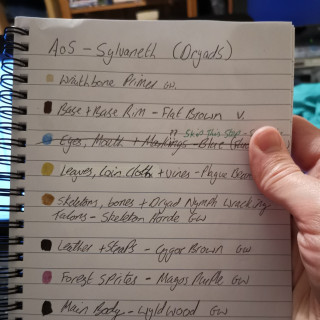 AoS - Sylvaneth (Dryads)
Wraithbone Primer GW.
Base + Base Rim - Flat Brown V.
?? Skip this step -
Eyes, Mouth + Markings - Blue
Leaves, Loin Cloth + Vines - Plague
Skeletons, bones + Dryad Nymph
Talons - Skeleton Horde GW
Leather + Straps - Cygor Brown GW
Forest Sprites - Magos Purple GW
Main Body - Wyldwood GW